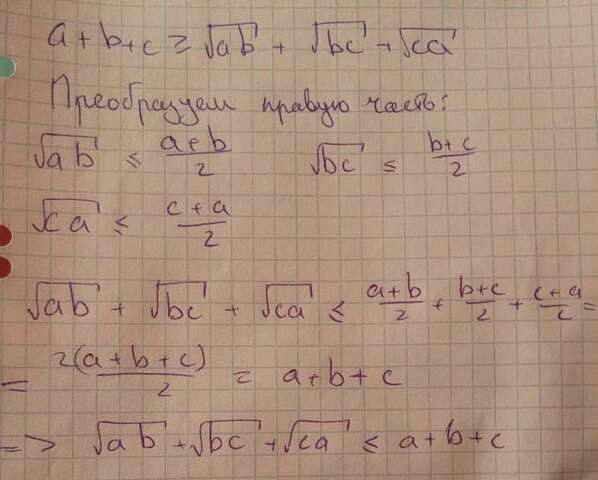 a + b + c ≥ √ab + √bc + √ca
Преобразуем правую часть:
√ab ≤ (a + b)/2 √bc ≤ (b + c)/2
√ca ≤ (c + a)/2
√ab + √bc + √ca ≤ (a + b)/2 + (b + c)/2 + (c + a)/2 =
= 2(a + b + c)/2 = a + b + c
=> √ab + √bc + √ca ≤ a + b + c